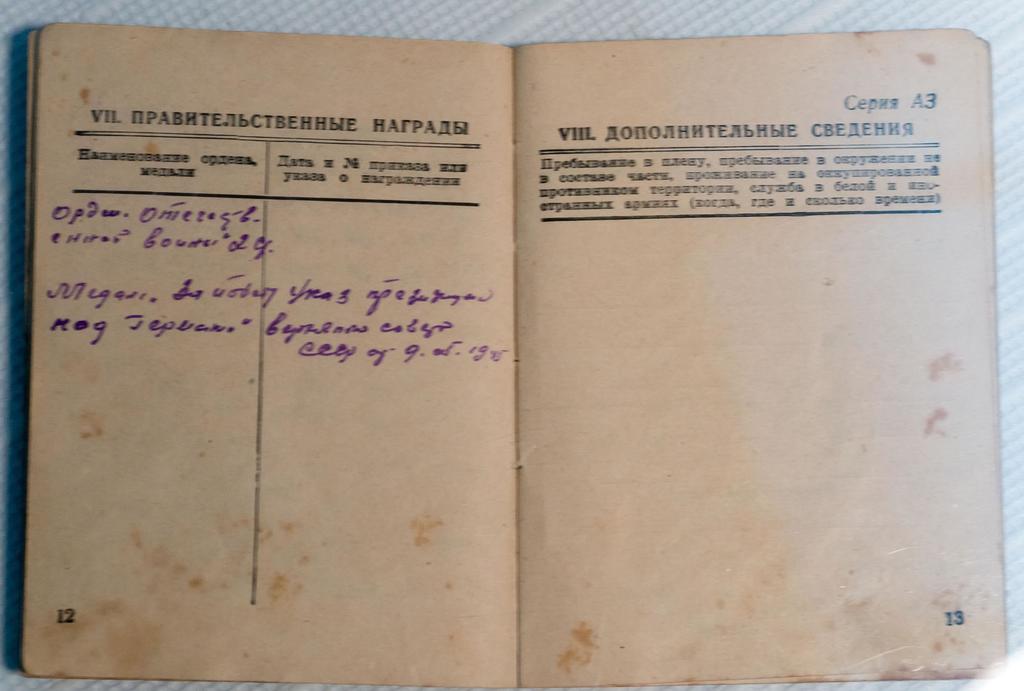 VII. ПРАВИТЕЛЬСТВЕННЫЕ НАГРАДЫ
Наименование ордена,
медали
Дата и № приказа или
указа о награждении
Орден. Отечеств-
енной войны 2
Медаль. За побед Указ президиум
над Герман." верховно совет
СССР от 9.
12
Серия АЗ
VIII. ДОПОЛНИТЕЛЬНЫЕ СВЕДЕНИЯ
Пребывание в плену, пребывание в окружении не
в составе части, проживание на оккупированной
противником территории, служба в белой и ино-
странных армиях (когда, где и сколько времени)
13